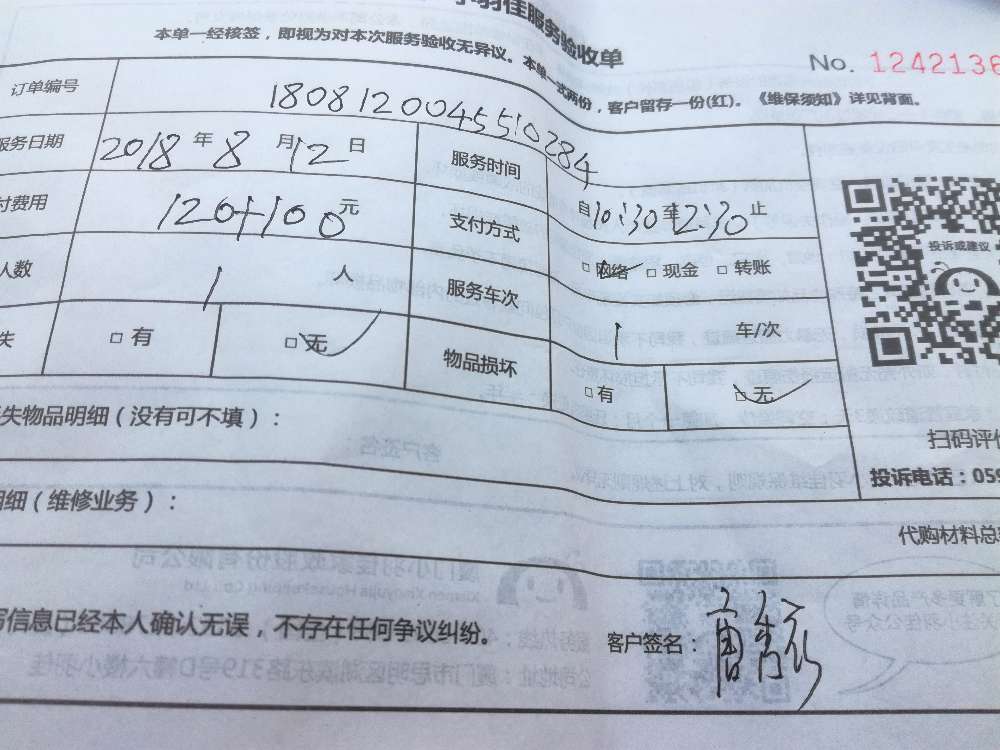 羽佳服务验收单
本单一经核签，即视为对本次服务验收无异议。本单一式两份，客户留存一份(红)。《维保须知》详见背面。
No. 1242136
订单编号 180812004551​0284
服务日期 2018 年 8 月 12 日 服务时间 自 10:30 至 12:30 止
付费用 120+100 元 支付方式 □ 网络 □ 现金 □ 转账
人数 1 人 服务车次 1 车/次
失 □ 有 □ 无 物品损坏 □ 有 □ 无
投诉或建议
扫码评价
投诉电话：059
失物品明细（没有可不填）：
明细（维修业务）：
代购材料总
写信息已经本人确认无误，不存在任何争议纠纷。
客户签名：